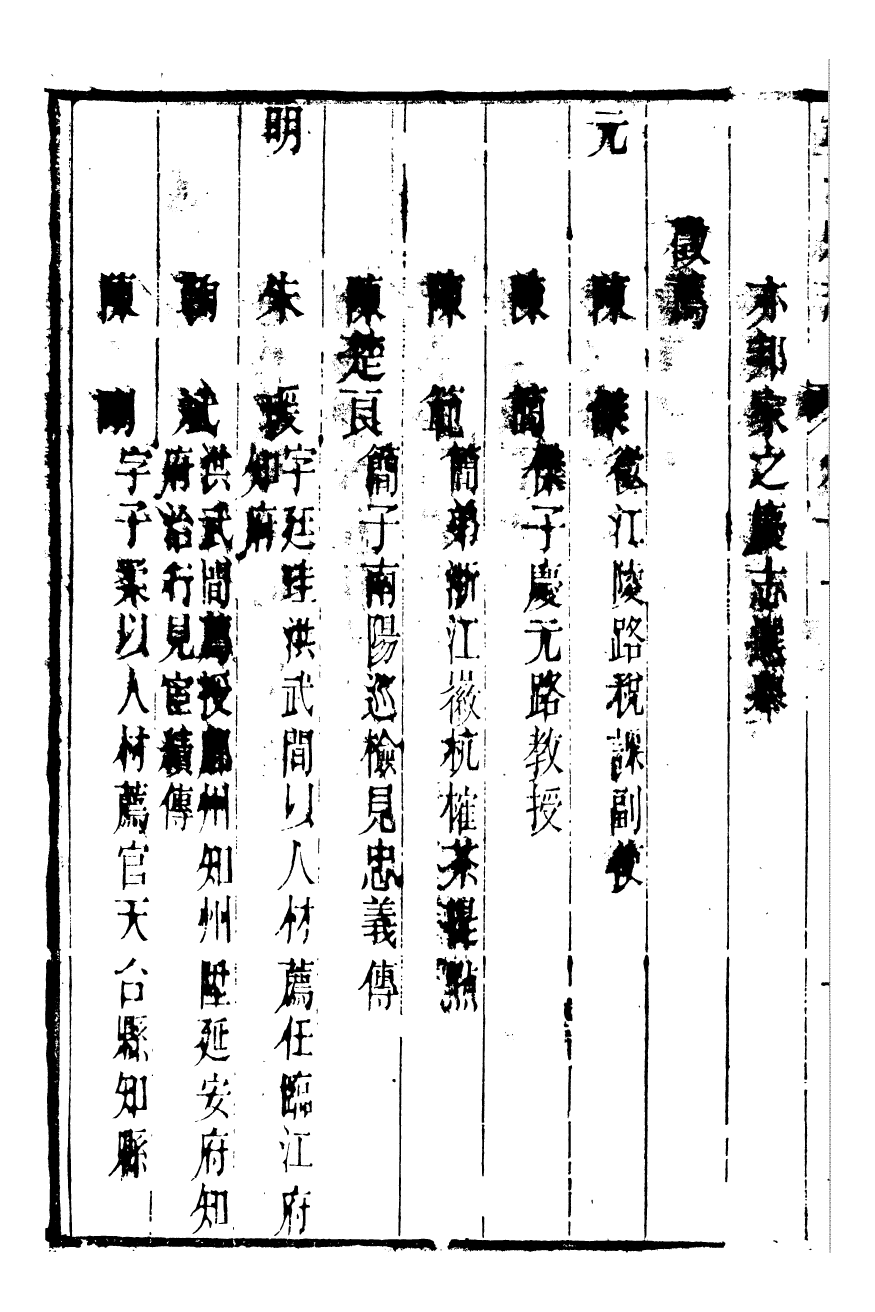 亦邦家之慶志選舉
徵薦
元　陳傑　徵江陵路稅課副使
陳簡　傑子慶元路教授
陳範　簡弟浙江徽杭榷茶提點
陳楚頁　簡子南陽巡檢見忠義傳
明　朱瑗　字廷珪洪武間以人材薦任臨江府
知府
斌　洪武間薦授州知州陞延安府知
府治行見宦績傳
陳剛　字子柔以人材薦官天台縣知縣